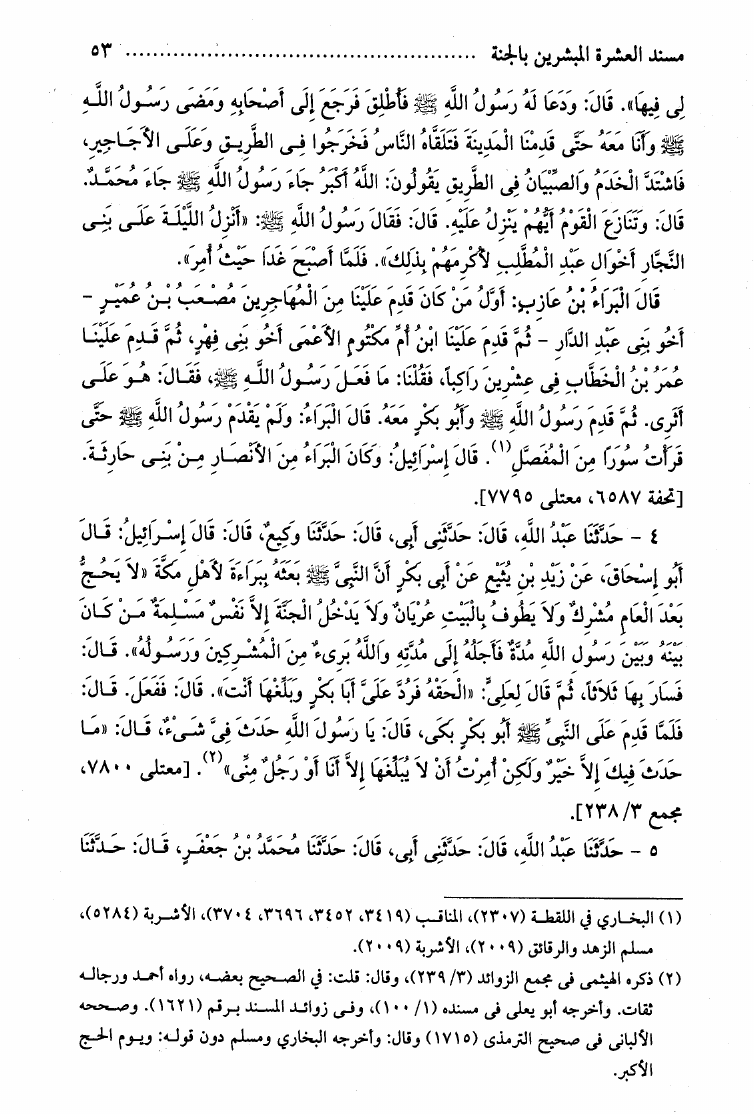 مسند العشرة المبشرين بالجنة ................................................ ٥٣
لِى فِيهَا». قَالَ: وَدَعَا لَهُ رَسُولُ اللَّهِ ﷺ فَأُطْلِقَ فَرَجَعَ إِلَى أَصْحَابِهِ وَمَضَى رَسُولُ اللَّهِ
ﷺ وَأَنَا مَعَهُ حَتَّى قَدِمْنَا الْمَدِينَةَ فَتَلَقَّاهُ النَّاسُ فَخَرَجُوا فِى الطَّرِيقِ وَعَلَى الأَجَاجِيرِ،
فَاشْتَدَّ الْخَدَمُ وَالصِّبْيَانُ فِى الطَّرِيقِ يَقُولُونَ: اللَّهُ أَكْبَرُ جَاءَ رَسُولُ اللَّهِ ﷺ جَاءَ مُحَمَّدٌ.
قَالَ: وَتَنَازَعَ الْقَوْمُ أَيُّهُمْ يَنْزِلُ عَلَيْهِ. قَالَ: فَقَالَ رَسُولُ اللَّهِ ﷺ: «أَنْزِلُ اللَّيْلَةَ عَلَى بَنِى
النَّجَّارِ أَخْوَالِ عَبْدِ الْمُطَّلِبِ لأُكْرِمَهُمْ بِذَلِكَ». فَلَمَّا أَصْبَحَ غَدَا حَيْثُ أُمِرَ».
قَالَ الْبَرَاءُ بْنُ عَازِبٍ: أَوَّلُ مَنْ كَانَ قَدِمَ عَلَيْنَا مِنَ الْمُهَاجِرِينَ مُصْعَبُ بْنُ عُمَيْرٍ –
أَخُو بَنِى عَبْدِ الدَّارِ – ثُمَّ قَدِمَ عَلَيْنَا ابْنُ أُمِّ مَكْتُومٍ الأَعْمَى أَخُو بَنِى فِهْرٍ، ثُمَّ قَدِمَ عَلَيْنَا
عُمَرُ بْنُ الْخَطَّابِ فِى عِشْرِينَ رَاكِباً، فَقُلْنَا: مَا فَعَلَ رَسُولُ اللَّهِ ﷺ، فَقَالَ: هُوَ عَلَى
أَثَرِى. ثُمَّ قَدِمَ رَسُولُ اللَّهِ ﷺ وَأَبُو بَكْرٍ مَعَهُ. قَالَ الْبَرَاءُ: وَلَمْ يَقْدَمْ رَسُولُ اللَّهِ ﷺ حَتَّى
قَرَأْتُ سُوَرًا مِنَ الْمُفَصَّلِ(١). قَالَ إِسْرَائِيلُ: وَكَانَ الْبَرَاءُ مِنَ الأَنْصَارِ مِنْ بَنِى حَارِثَةَ.
[تحفة ٦٥٨٧، معتلى ٧٧٩٥].
٤ – حَدَّثَنَا عَبْدُ اللَّهِ، قَالَ: حَدَّثَنِى أَبِى، قَالَ: حَدَّثَنَا وَكِيعٌ، قَالَ: قَالَ إِسْرَائِيلُ: قَالَ
أَبُو إِسْحَاقَ، عَنْ زَيْدِ بْنِ يُثَيْعٍ عَنْ أَبِى بَكْرٍ أَنَّ النَّبِىَّ ﷺ بَعَثَهُ بِبَرَاءَةَ لأَهْلِ مَكَّةَ «لاَ يَحُجُّ
بَعْدَ الْعَامِ مُشْرِكٌ وَلاَ يَطُوفُ بِالْبَيْتِ عُرْيَانٌ وَلاَ يَدْخُلُ الْجَنَّةَ إِلاَّ نَفْسٌ مُسْلِمَةٌ مَنْ كَانَ
بَيْنَهُ وَبَيْنَ رَسُولِ اللَّهِ مُدَّةٌ فَأَجَلُهُ إِلَى مُدَّتِهِ وَاللَّهُ بَرِىءٌ مِنَ الْمُشْرِكِينَ وَرَسُولُهُ». قَالَ:
فَسَارَ بِهَا ثَلاَثاً، ثُمَّ قَالَ لِعَلِىٍّ: «الْحَقْهُ فَرُدَّ عَلَىَّ أَبَا بَكْرٍ وَبَلِّغْهَا أَنْتَ». قَالَ: فَفَعَلَ. قَالَ:
فَلَمَّا قَدِمَ عَلَى النَّبِىِّ ﷺ أَبُو بَكْرٍ بَكَى، قَالَ: يَا رَسُولَ اللَّهِ حَدَثَ فِىَّ شَىْءٌ، قَالَ: «مَا
حَدَثَ فِيكَ إِلاَّ خَيْرٌ وَلَكِنْ أُمِرْتُ أَنْ لاَ يُبَلِّغَهَا إِلاَّ أَنَا أَوْ رَجُلٌ مِنِّى»(٢). [معتلى ٧٨٠٠،
مجمع ٣/ ٢٣٨].
٥ – حَدَّثَنَا عَبْدُ اللَّهِ، قَالَ: حَدَّثَنِى أَبِى، قَالَ: حَدَّثَنَا مُحَمَّدُ بْنُ جَعْفَرٍ، قَالَ: حَدَّثَنَا
(١) البخاري في اللقطة (٢٣٠٧)، المناقب (٣٤١٩، ٣٤٥٢، ٣٦٩٦، ٣٧٠٤)، الأشربة (٥٢٨٤)،
مسلم الزهد والرقائق (٢٠٠٩)، الأشربة (٢٠٠٩).
(٢) ذكره الهيثمى فى مجمع الزوائد (٣/ ٢٣٩)، وقال: قلت: في الصحيح بعضه، رواه أحمد ورجاله
ثقات. وأخرجه أبو يعلى فى مسنده (١/ ١٠٠)، وفى زوائد المسند برقم (١٦٢١). وصححه
الألبانى فى صحيح الترمذى (١٧١٥) وقال: وأخرجه البخاري ومسلم دون قوله: ويوم الحج
الأكبر.